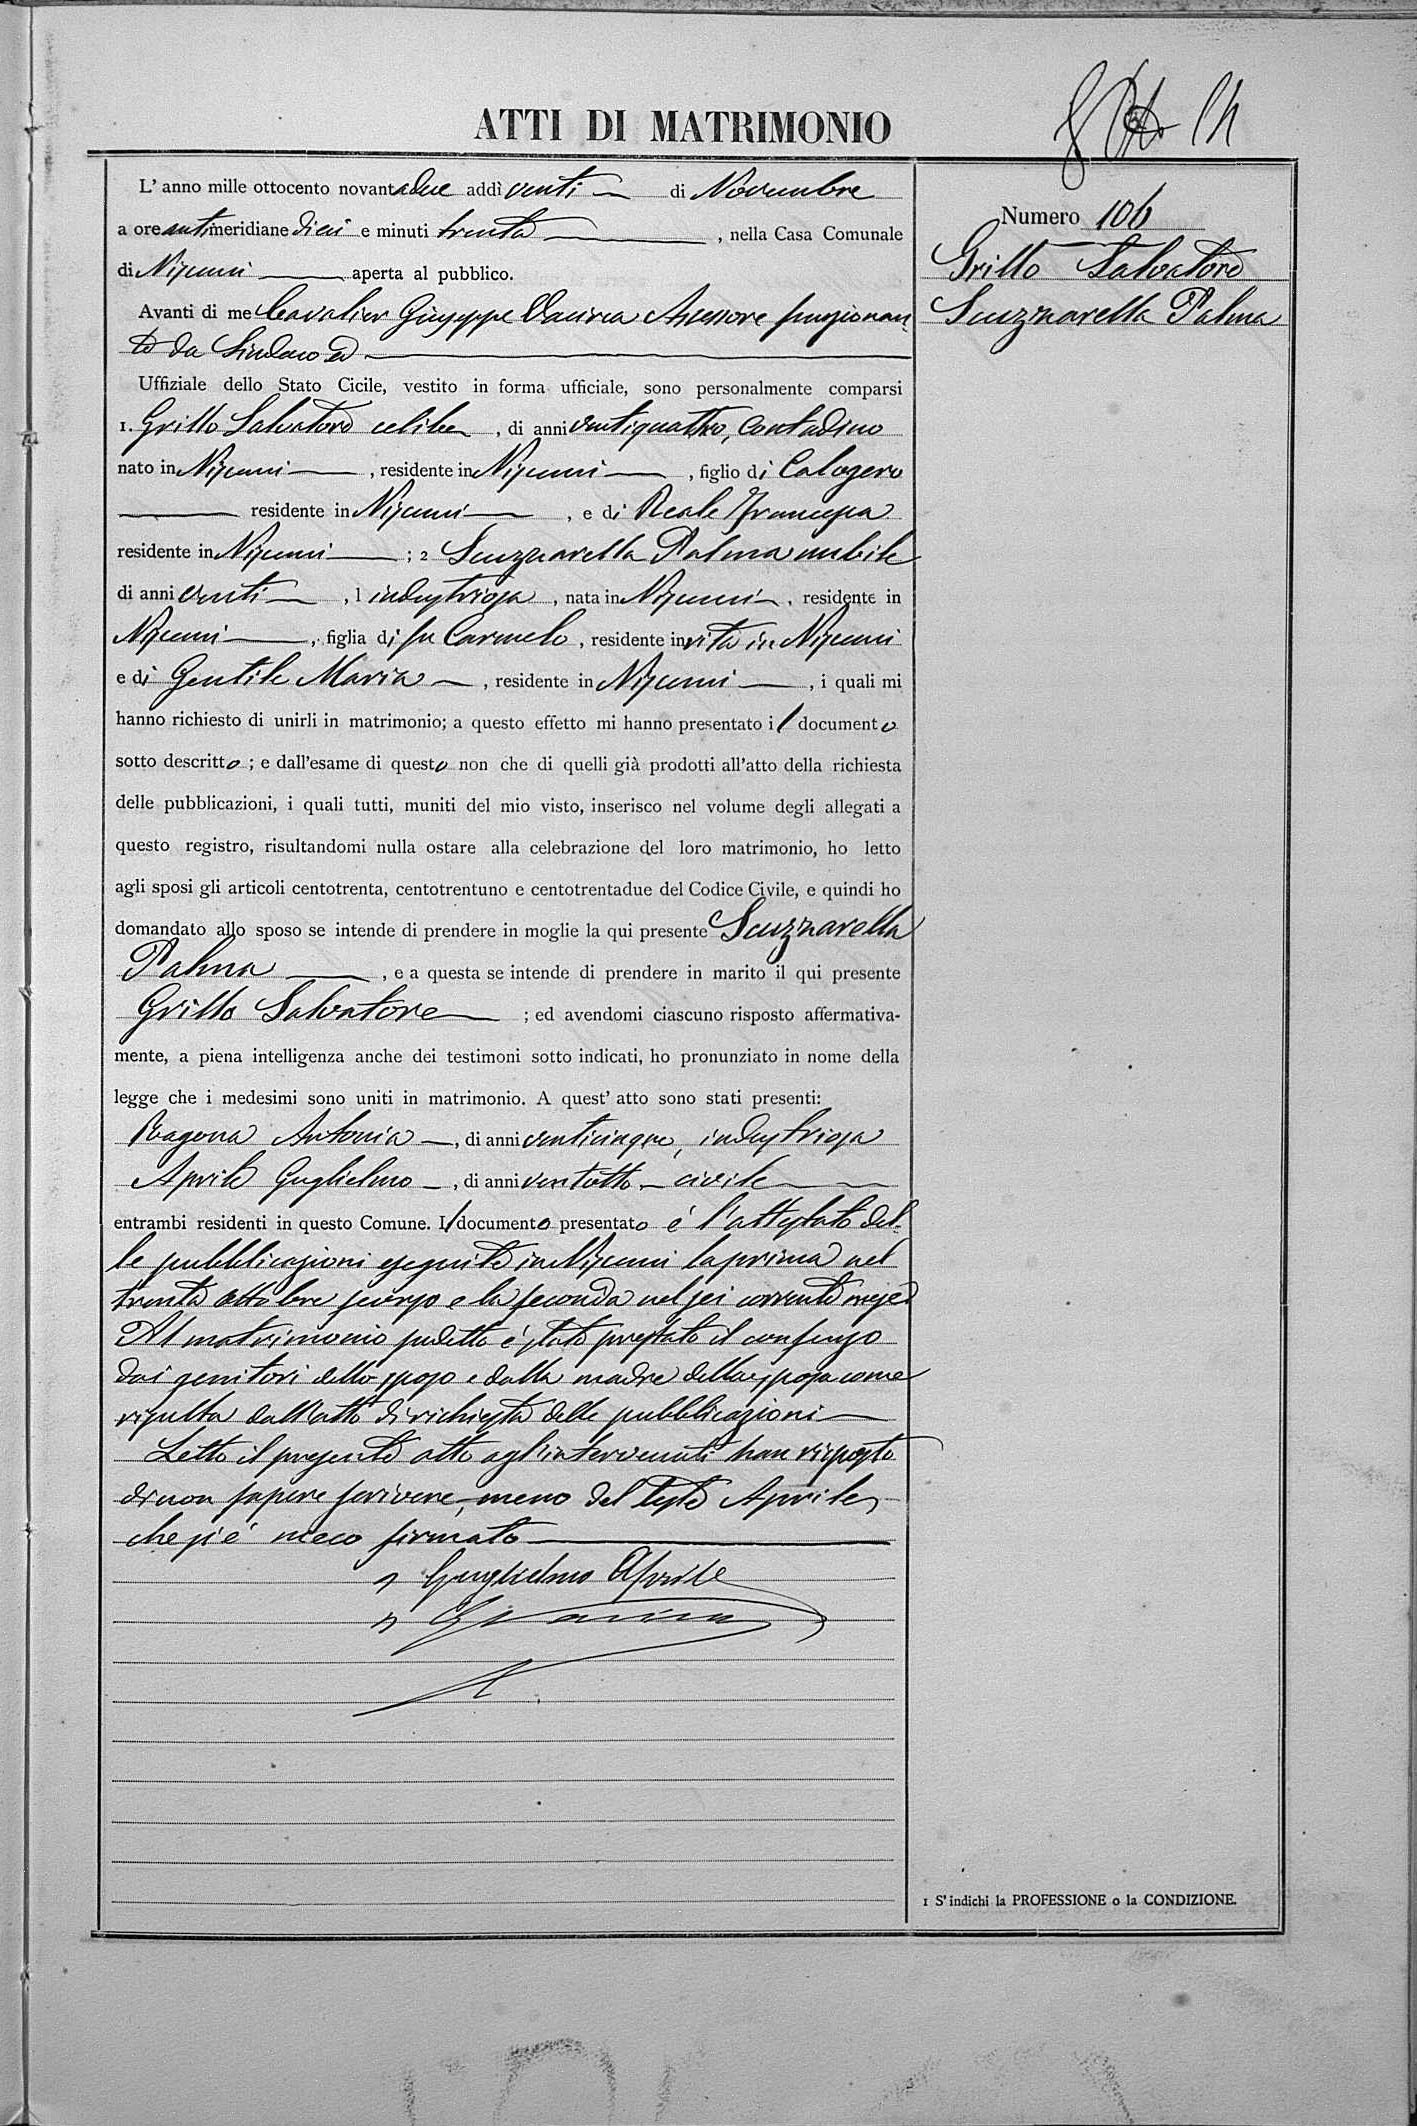 ATTI DI MATRIMONIO
L' anno mille ottocento novantadue addì venti di Novembre
a ore antimeridiane dieci e minuti trenta , nella Casa Comunale
di Niscemi aperta al pubblico.
Avanti di me Cavalier Giuseppe Assessore funzionan
te da Sindaco ed
Uffiziale dello Stato Cicile, vestito in forma ufficiale, sono personalmente comparsi
1. Grillo Salvatore celibe , di anni ventiquattro, contadino
nato in Niscemi , residente in Niscemi , figlio di Calogero
residente in Niscemi , e di Reale Francesca
residente in Niscemi ; 2 Scuzzarella Palma nubile
di anni venti , 1 industriosa , nata in Niscemi , residente in
Niscemi , figlia di fu Carmelo , residente in vita in Niscemi
e di Gentile Maria , residente in Niscemi , i quali mi
hanno richiesto di unirli in matrimonio; a questo effetto mi hanno presentato il documento
sotto descritto ; e dall'esame di questo non che di quelli già prodotti all'atto della richiesta
delle pubblicazioni, i quali tutti, muniti del mio visto, inserisco nel volume degli allegati a
questo registro, risultandomi nulla ostare alla celebrazione del loro matrimonio, ho letto
agli sposi gli articoli centotrenta, centotrentuno e centotrentadue del Codice Civile, e quindi ho
domandato allo sposo se intende di prendere in moglie la qui presente Scuzzarella
Palma , e a questa se intende di prendere in marito il qui presente
Grillo Salvatore ; ed avendomi ciascuno risposto affermativa-
mente, a piena intelligenza anche dei testimoni sotto indicati, ho pronunziato in nome della
legge che i medesimi sono uniti in matrimonio. A quest' atto sono stati presenti:
Ragona Antonia , di anni venticinque, industriosa
Aprile Guglielmo , di anni ventotto civile
entrambi residenti in questo Comune. Il documento presentato é l'attestato del
le pubblicazioni eseguite in Niscemi la prima nel
trenta Ottobre scorso e la seconda nel sei corrente mese
Al matrimonio sudetto é stato prestato il consenso
dai genitori dello sposo e dalla madre della sposa come
risulta dall'atto di richiesta delle pubblicazioni
Letto il presente atto agl'intervenuti han risposto
di non sapere scrivere, meno del teste Aprile
che si é meco firmato
Guglielmo Aprile
Numero 106
Grillo Salvatore
Scuzzarella Palma
1 S'indichi la PROFESSIONE o la CONDIZIONE.